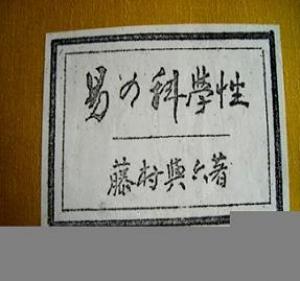 易の科學性
藤村與六著